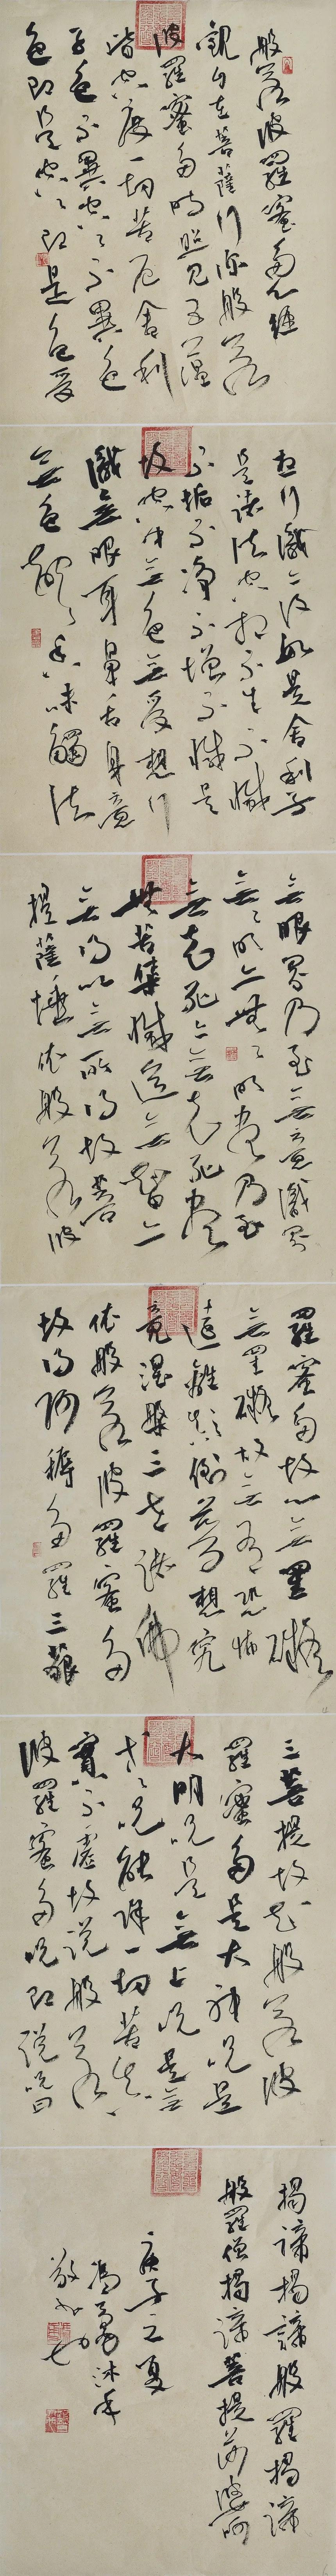 般若波羅蜜多心經
觀自在菩薩行深般若
波羅蜜多時照見五蘊
皆空度一切苦厄舍利
子色不異空空不異色
色即是空空即是色受
想行識亦復如是舍利子
是諸法空相不生不滅
不垢不淨不增不減是
故空中無色無受想行
識無眼耳鼻舌身意
無色聲香味觸法
無眼界乃至無意識界
無無明亦無無明盡乃至
無老死亦無老死盡
無苦集滅道無智亦
無得以無所得故菩
提薩埵依般若波
羅蜜多故心無罣礙
無罣礙故無有恐怖
遠離顛倒夢想究
竟涅槃三世諸佛
依般若波羅蜜多
故得阿耨多羅三藐
三菩提故知般若波
羅蜜多是大神咒是
大明咒是無上咒是無
等等咒能除一切苦真
實不虛故說般若
波羅蜜多咒即說咒曰
揭諦揭諦般羅揭諦
般羅僧揭諦菩提莎婆訶
庚子之夏
馮勇沐手
敬書